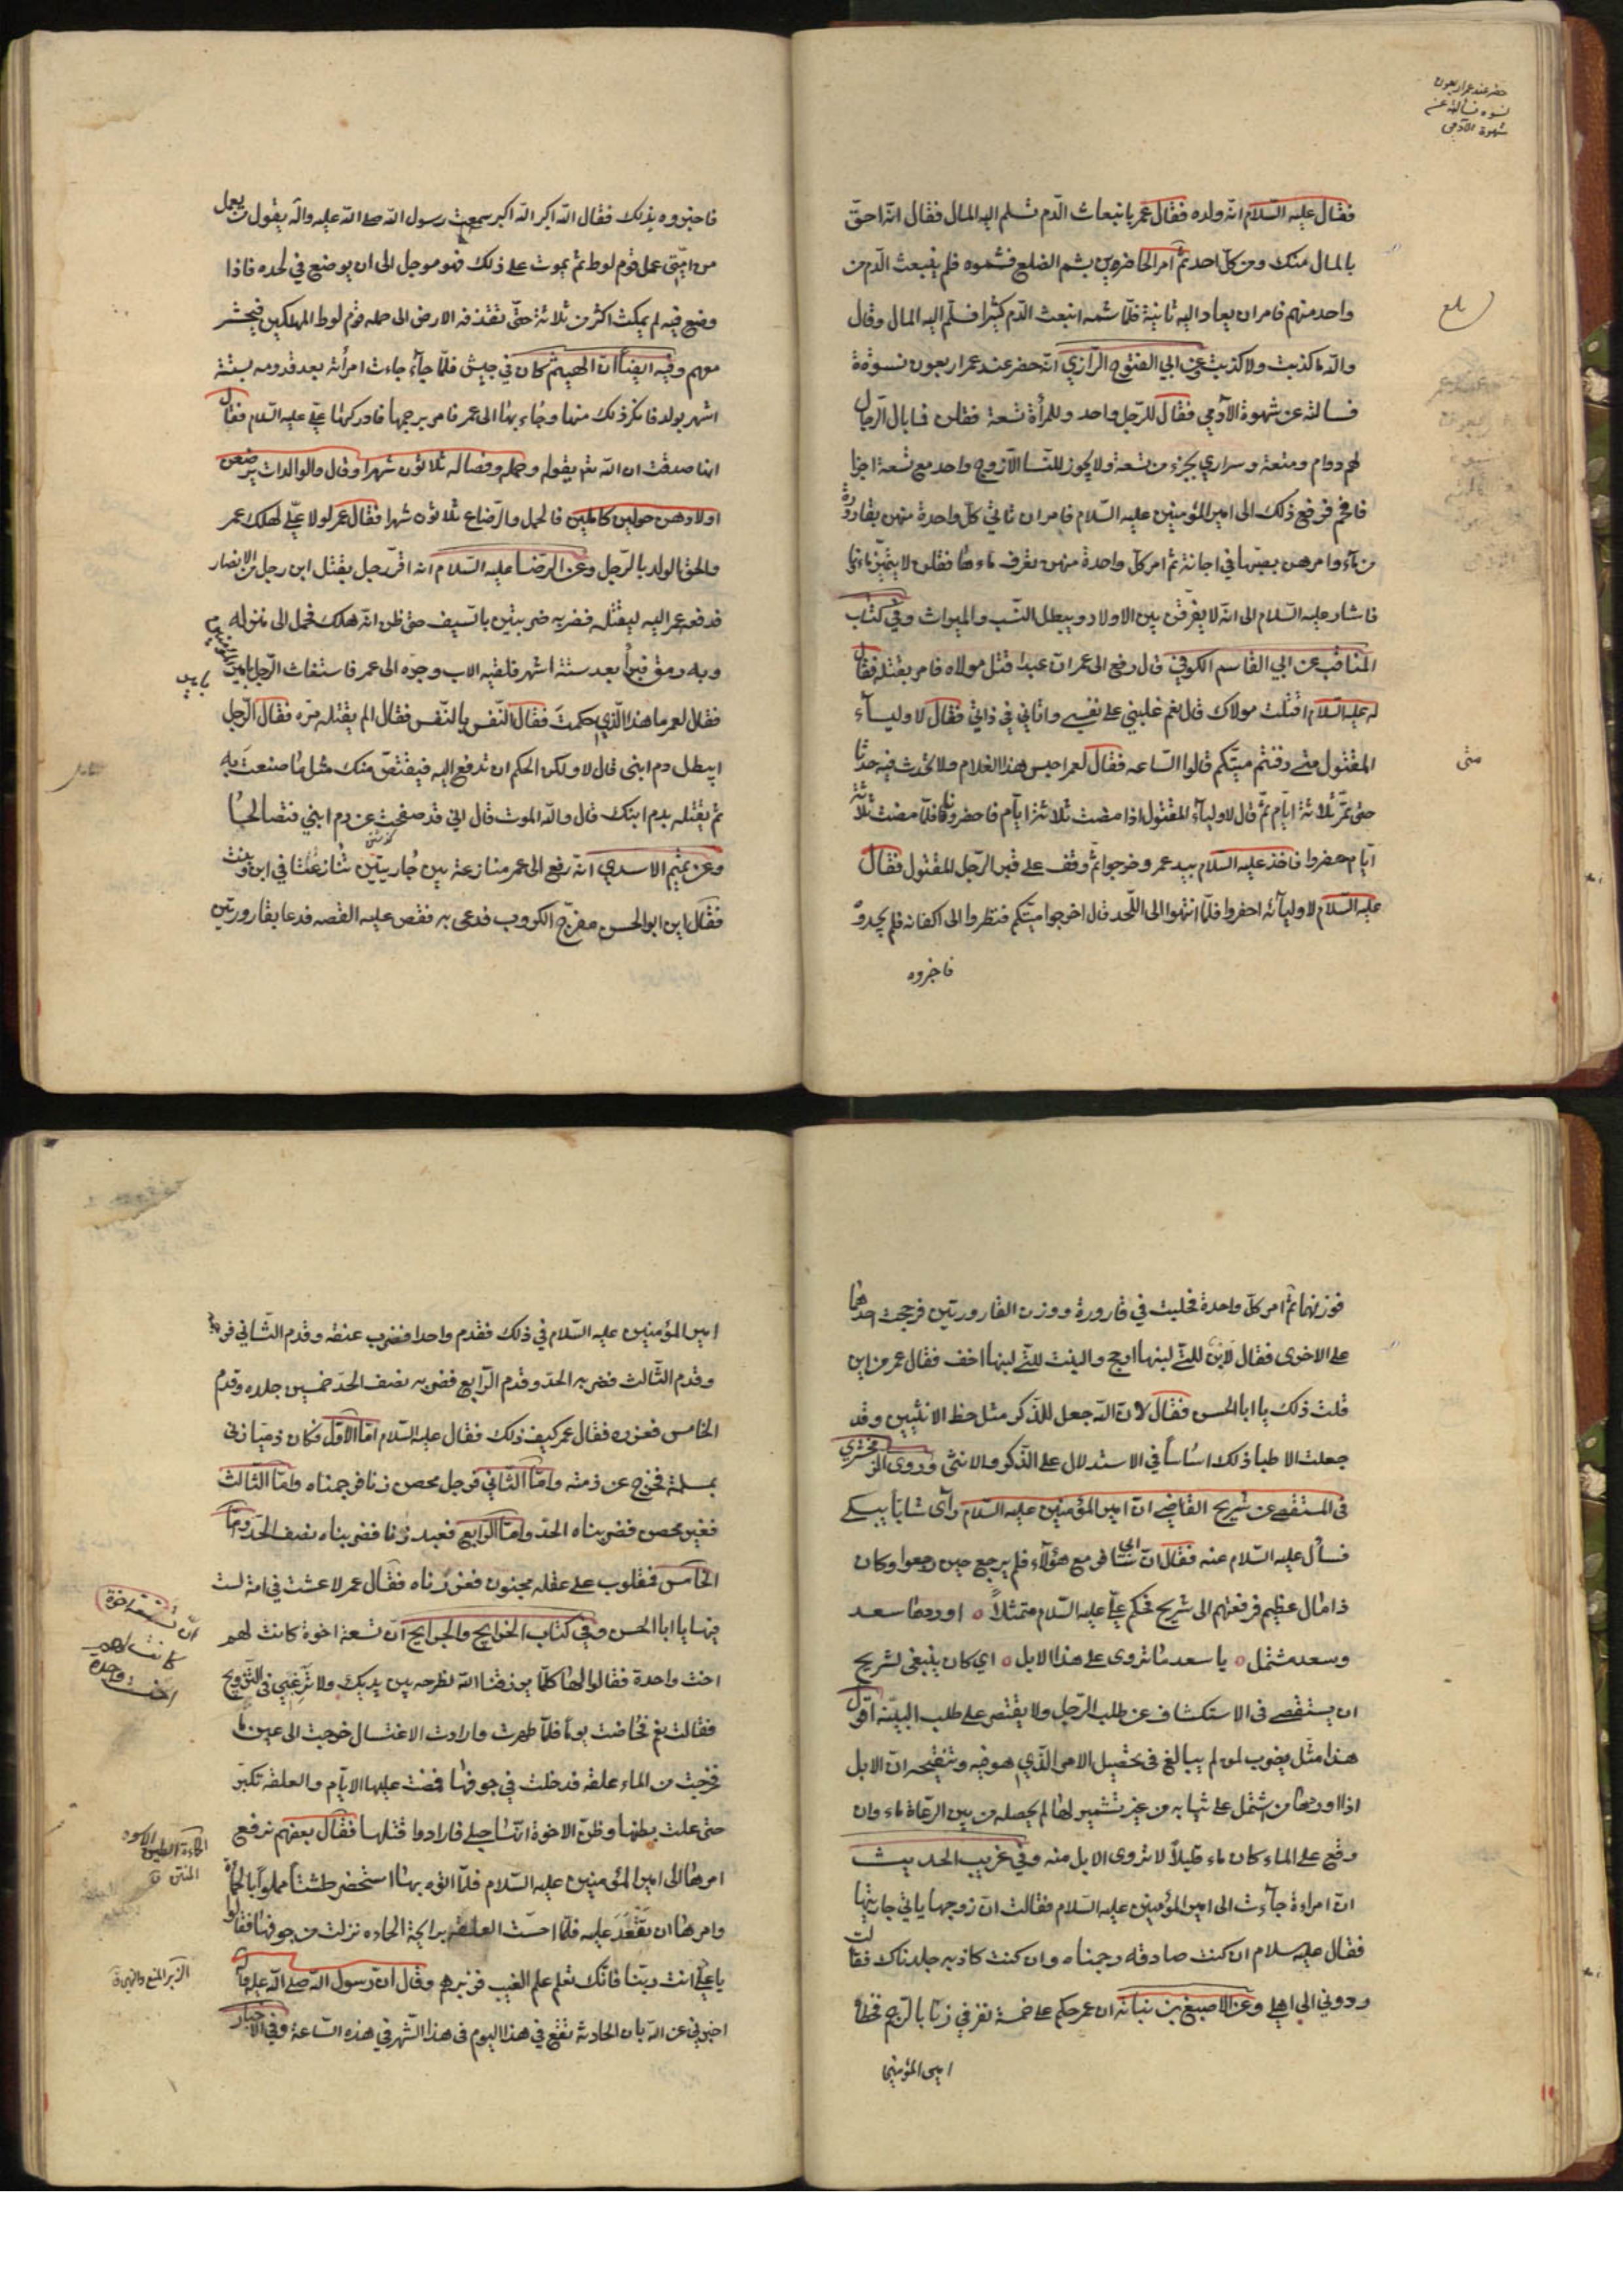 حضر عند عمر اربعون
نسوة فسألنه عن
شهوة الآدمي
فقال عليه السّلام انه ولده فقال عمر بانبعاث الدّم تسلم اليه المال فقال انه احقّ
بالمال منك ومن كلّ احد ثمّ امر الحاضرين بشم الضلع فشموه فلم ينبعث الدّم من
واحد منهم فامر ان يعاد اليه ثانية فلمّا شمه انبعث الدّم كثيرا فسلّم اليه المال وقال
والله ما كذبت ولا كذبت عن ابي الفتوح الرّازي انه حضر عند عمر اربعون نسوة
فسالنه عن شهوة الآدمي فقال للرّجل واحد وللمرأة تسعة فقلن فما بال الرّجال
لهم دوام ومتعة وسراري بجزء من تسعة ولا يجوز للنسا الّا زوج واحد مع تسعة اجزا
فافحم فرفع ذلك الى امير المؤمنين عليه السّلام فامر ان تاتي كلّ واحدة منهن بقارورة
من ماء وامرهن بصبّها في اجانة ثمّ امر كلّ واحدة منهن تغرف ماءها فقلن لا يتميّز ماءنا
فاشار عليه السّلام الى انه لا يفرّقن بين الاولاد ويبطل النّسب والميراث وفي كتاب
المناقب عن ابي القاسم الكوفي قال رفع الى عمر انّ عبدا قتل مولاه فامر بقتله فقال
له عليه السّلام اقتلت مولاك قال نعم غلبني على نفسي واتاني في ذاتي فقال لاولياء
المقتول متى دفنتم ميّتكم قالوا السّاعه فقال لعمر احبس هذا الغلام فلا تحدث فيه حدثا
متى
حتى تمرّ ثلاثة ايّام ثمّ قال لاولياء المقتول اذا مضت ثلاثة ايّام فاحضرونا فلمّا مضت ثلاثة
ايّام حضروا فاخذ عليه السّلام بيد عمر وخرجوا ثمّ وقف على قبر الرّجل المقتول فقال
عليه السّلام لاوليائه احفروا فلمّا انتهوا الى اللّحد قال اخرجوا ميّتكم فنظروا الى اكفانه فلم يجدوه
فاخبروه
فاخبروه بذلك فقال الله اكبر الله اكبر سمعت رسول الله صلى الله عليه وآله يقول من يعمل
من امّتي عمل قوم لوط ثمّ يموت على ذلك فهو موجل الى ان يوضع في لحده فاذا
وضع فيه لم يمكث اكثر من ثلاثة حتّى تقذفه الارض الى جمله قوم لوط المهلكين فيحشر
معهم وفيه ايضاً انّ الهيثم كان في جيش فلمّا جاء جاءت امرأته بعد قدومه بستّة
اشهر بولد فانكر ذلك منها وجاء بها الى عمر فامر برجمها فادركها عليّ عليه السّلام فقال
انها صدقت ان الله تع يقوله وحمله وفصاله ثلاثون شهرا وقال والوالدات يرضعن
اولادهن حولين كاملين فالحمل والرّضاع ثلاثون شهرا فقال عمر لولا عليّ لهلك عمر
والحق الولد بالرّجل وعن الرّضا عليه السّلام انه اقرّ رجل بقتل ابن رجل من الانصار
فدفعه عمر اليه ليقتله فضربه ضربتين بالسّيف حتى ظن انه هلك فحمل الى منزله
وبه رمق فبرأ بعد ستة اشهر فلقيه الاب وجرّه الى عمر فاستغاث الرّجل بامير المؤمنين
فقال لعمر ما هذا الّذي حكمت فقال النّفس بالنّفس فقال الم يقتله مرّه فقال الرّجل
ايبطل دم ابني قال لا ولكن الحكم ان تدفع اليه فيقتص منك مثل ما صنعت به
ثمّ يقتله بدم ابنك قال والله الموت قال اني قد صفحت عن دم ابني فتصالحا
وعن تميم الاسدي انه رفع الى عمر منازعة بين جاريتين تنازعتا في ابن وبنت
فقال اين ابو الحسن مفرّج الكروب فدعى به فقص عليه القصه فدعا بقارورتين
فوزنهما ثمّ امر كلّ واحدة فحلبت في قارورة ووزن القارورتين فرجحت احداهما
على الاخرى فقال لابن للتي لبنها ارجح والبنت للتي لبنها اخف فقال عمر من اين
قلت ذلك يا ابا الحسن فقال لانّ الله جعل للذّكر مثل حظ الانثيين وقد
جعلت الاطبا ذلك اساساً في الاستدلال على الذّكر والانثى وروى الزمخشري
في المستقصى عن شريح القاضي انّ امير المؤمنين عليه السّلام رآى شابّا يبكي
فسأل عليه السّلام عنه فقال انّ ابي سافر مع هؤلاء فلم يرجع حين رجعوا وكان
ذا مال عظيم فرفعتهم الى شريح فحكم عليّ عليه السّلام متمثلاً ه اوردها سعد
وسعد مشتمل ه يا سعد ما تروى على هذا الابل ه اي كان ينبغي لشريح
ان يستقصي في الاستكشاف عن طلب الرّجل ولا يقتصر على طلب البيّنه اقول
هذا مثل يضرب لمن لم يبالغ في تحصيل الامر الّذي هو فيه وتنقيحه انّ الابل
اذا اوردها من اشتمل على ثيابه من غير تشمير لها لم يحصله من بين الرعاة ماء وان
وقع على الماء كان ماء قليلاً لا تروى الابل منه وفي غريب الحديث
انّ امراءة جآءت الى امير المؤمنين عليه السّلام فقالت انّ زوجها ياتي جاريتها
فقال عليه سلام ان كنت صادقه رجمناه وان كنت كاذبه جلدناك فقالت
ردوني الى اهلي وعن الاصبغ بن نباته ان عمر حكم على خمسة نفر في زنا بالرّجم فخطاه
امير المؤمنين
امير المؤمنين عليه السّلام في ذلك فقدم واحدا فضرب عنقه وقدم الثّاني فرجمه
وقدم الثّالث فضربه الحد وقدم الرّابع فضربه نصف الحد خمسين جلده وقدم
الخامس فعزره فقال عمر كيف ذلك فقال عليه السّلام امّا الاوّل فكان ذميا زنى
بمسلمة فخرج عن ذمته وامّا الثّاني فرجل محصن زنا فرجمناه وامّا الثّالث
فغير محصن فضربناه الحدّ وامّا الرّابع فعبد زنا فضربناه نصف الحدّ وامّا
الخامس فمغلوب على عقله مجنون فعزرناه فقال عمر لا عشت في امة لست
فيها يا ابا الحسن وفي كتاب الخرايج والجرايح انّ تسعة اخوة كانت لهم
انّ تسعة اخوة
كانت لهم
اخت واحدة
اخت واحدة فقالوا لها كلّما يرزقنا الله نطرحه بين يديك ولا ترغبي في التّزويج
فقالت نعم فحاضت يوماً فلمّا طهرت وارادت الاغتسال خرجت الى عين ماء
فخرجت من الماء علقه فدخلت في جوفها فمضت عليها الايّام والعلقه تكبر
حتى علت بطنها وظنّ الاخوة انّها حبلى فارادوا قتلها فقال بعضهم نرفع
الحمأة الطين الاسود
المنتن ق
امرها الى امير المؤمنين عليه السّلام فلمّا اتوه بها استحضر طشتاً مملوّاً بالحمأة
وامرها ان تقعد عليه فلمّا احسّت العلقة برايحة الحماده نزلت من جوفها فقالوا
يا عليّ انت ربّنا فانّك تعلم علم الغيب فزبرهم وقال انّ رسول الله صلى الله عليه وآله
الزبر المنع والنهي ق
اخبرني عن الله بان الحادثه تقع في هذا اليوم في هذا الشّهر في هذه السّاعة وفي الاخبار